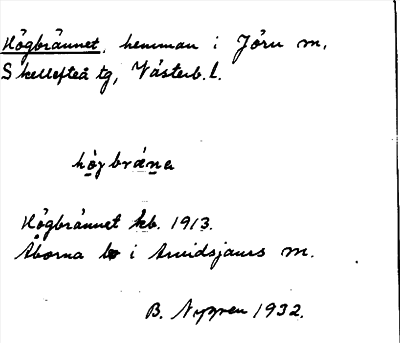 Högbrännet, hemman i Jörn m.
Skellefteå tg, Västerb. l.
högbräna
Högbrännet kb. 1913.
Åborna bo i Arvidsjaurs m.
B. Nygren 1932.